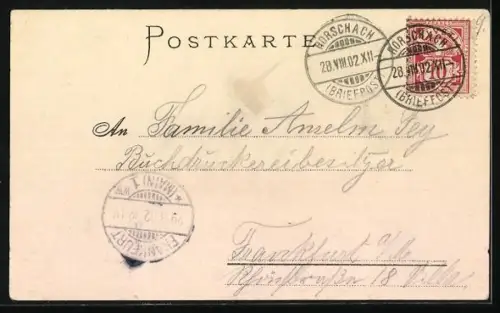 POSTKARTE
RORSCHACH
28.VIII.02.XII-
(BRIEFPOST)
RORSCHACH
28.VIII.02.XII-
(BRIEFPOST)
10
An Familie Anselm Fey
Buchdruckereibesitzer
FRANKFURT
(MAIN) 1
Frankfurt a/M
18